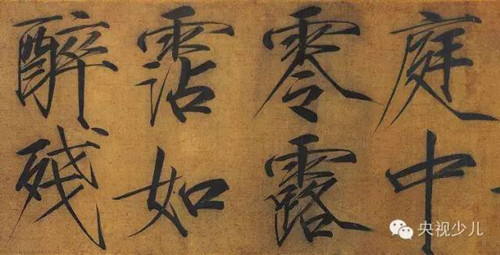 庭中
零露
霑如
醉残
央视少儿